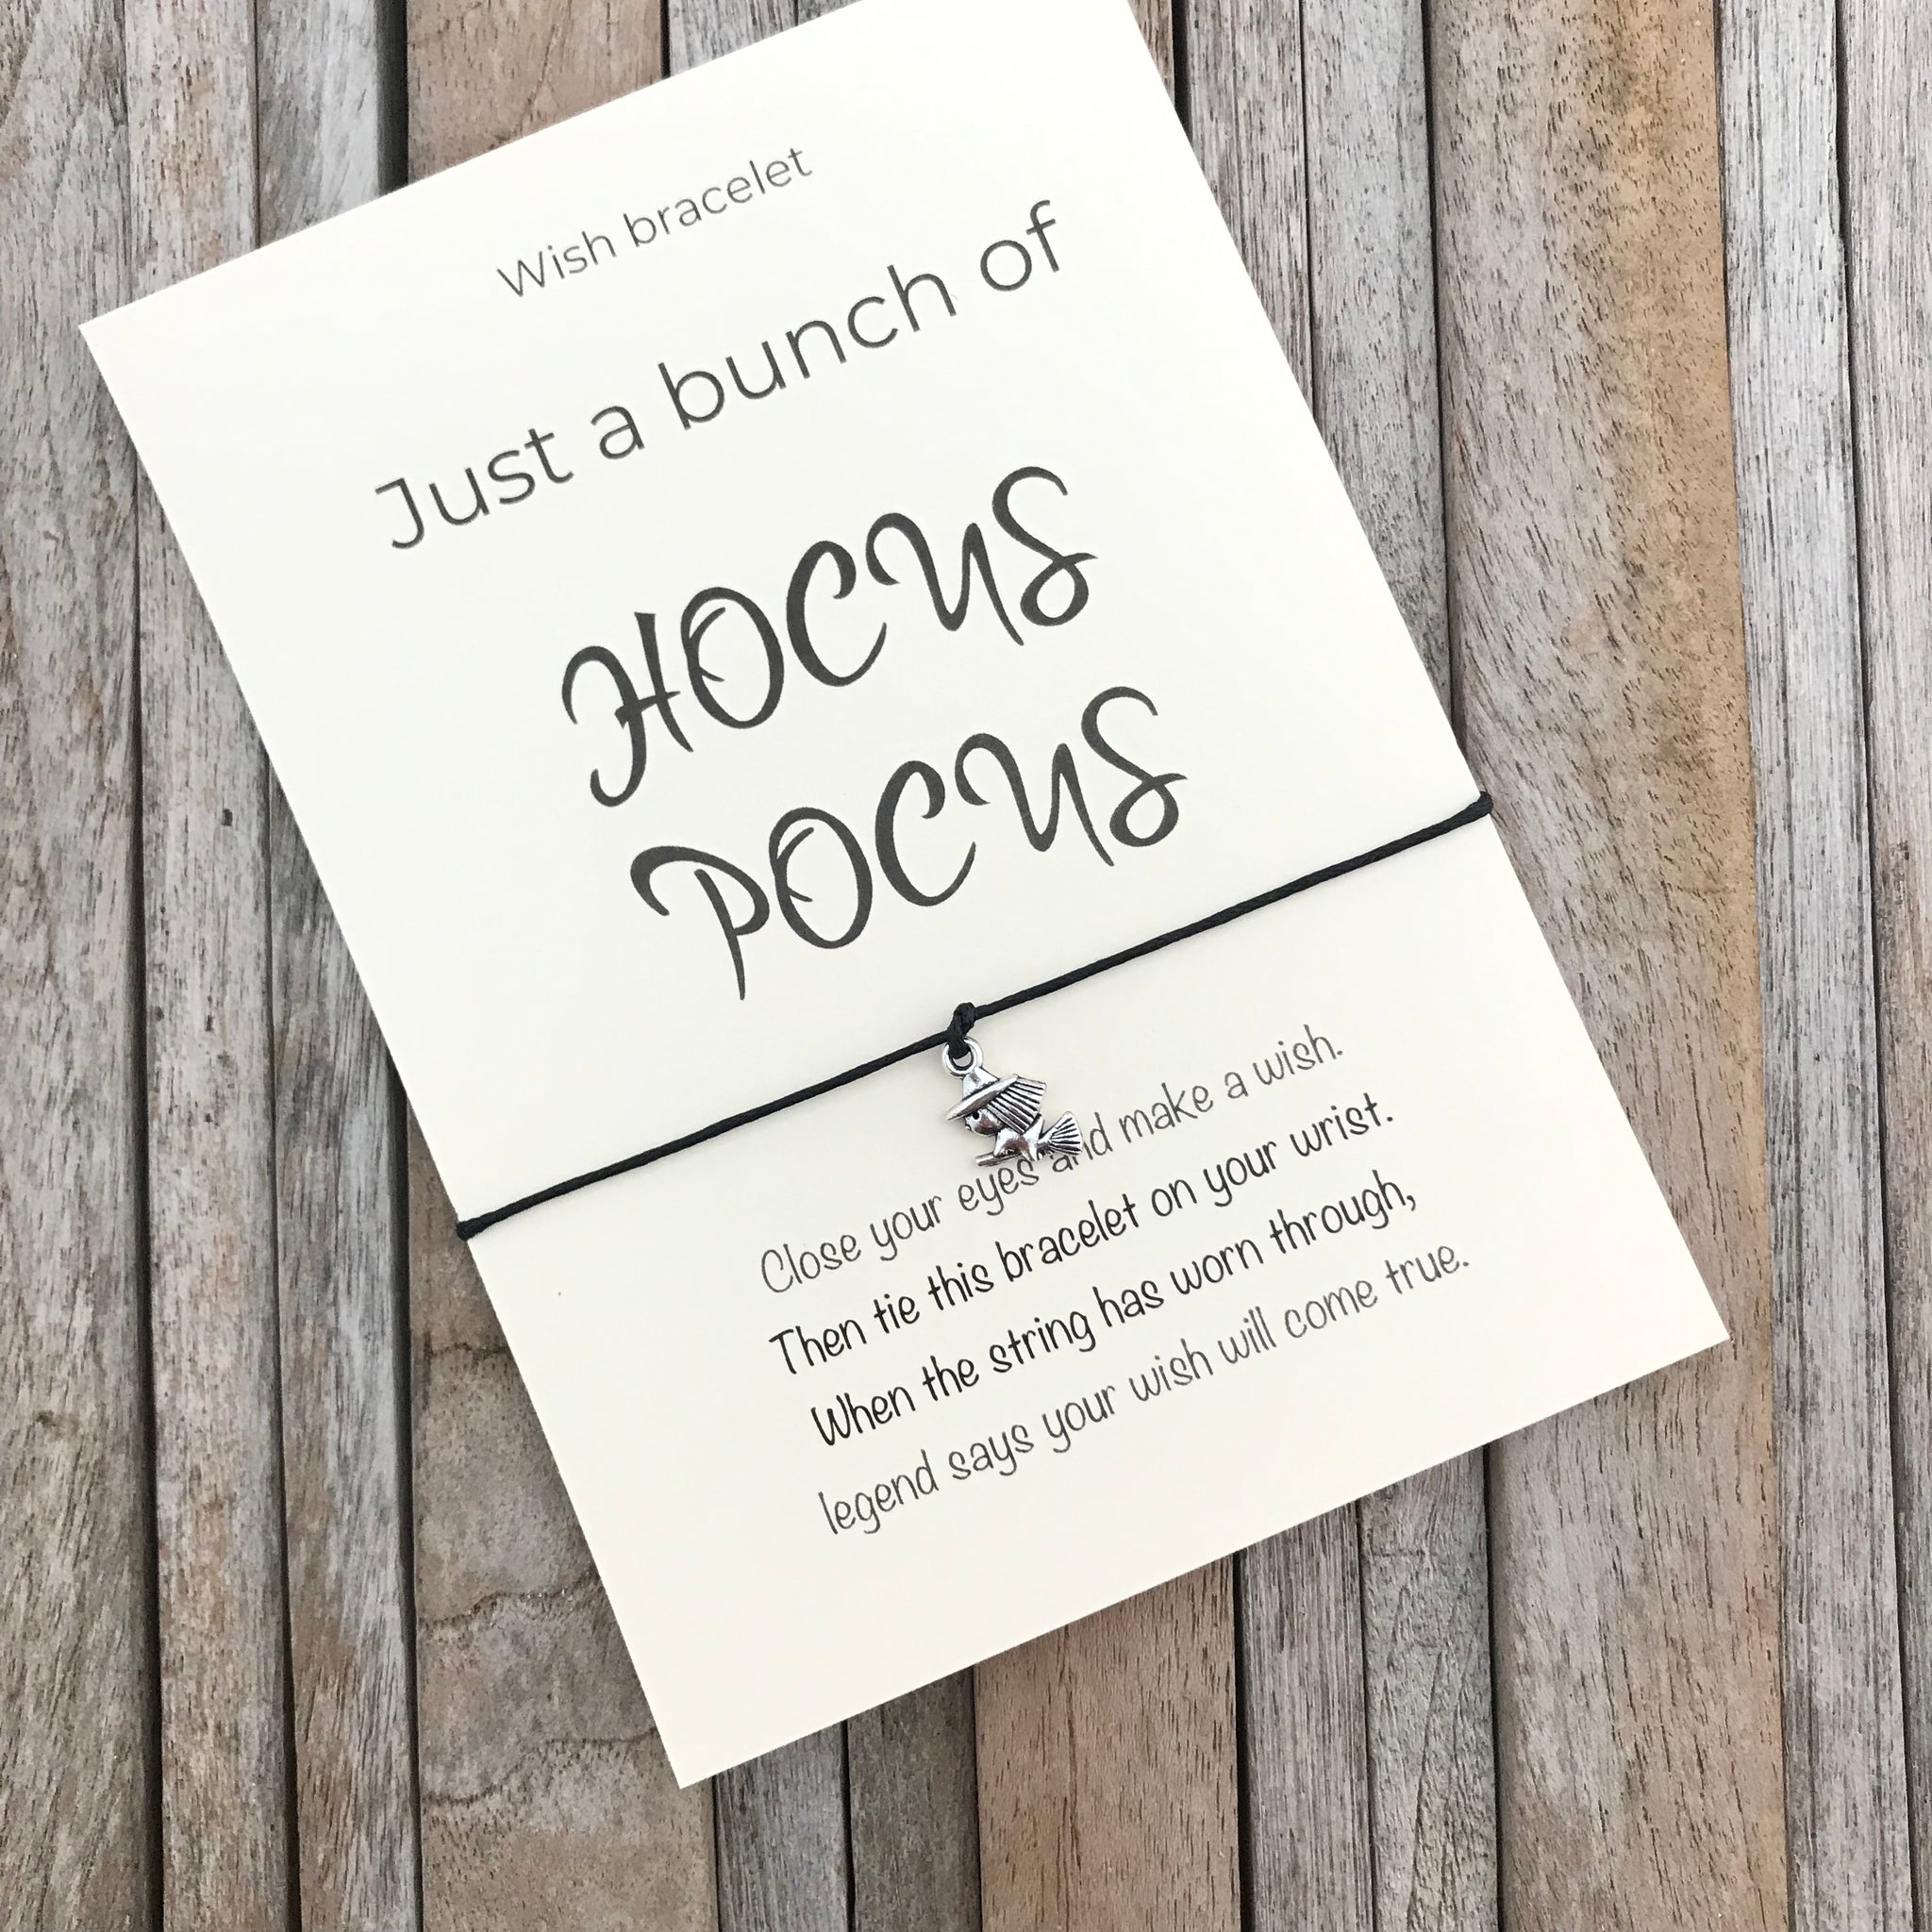 Wish bracelet
Just a bunch of
HOCUS
POCUS
Close your eyes and make a wish.
Then tie this bracelet on your wrist.
When the string has worn through,
legend says your wish will come true.